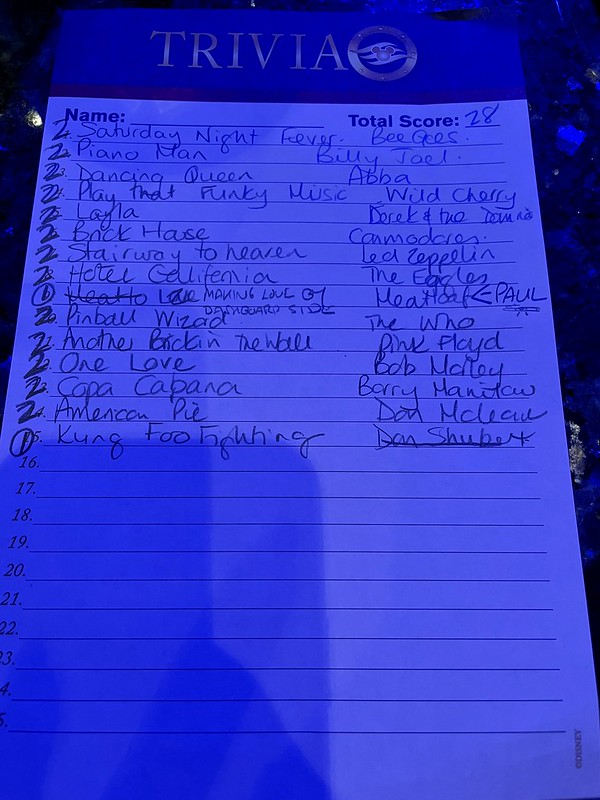 TRIVIA
Name: Total Score: 28
2 Saturday Night Fever. BeeGees.
2 Piano Man Billy Joel.
2 3. Dancing Queen Abba
2 Play that Funky Music Wild Cherry
2 Layla Derek & the
2 Brick House Commodores.
2 Stairway to heaven Led Zeppelin
2 Hotel The Eagles
1 MAKING LOVE BY Meatloaf < PAUL
DASHBOARD SIDE
2 Pinball Wizard. The Who
2 Another Brick in the Wall Pink Floyd
2 One Love Bob Marley
2 Copa Cabana Barry Manilow
2 4. American Pie Don Mclean
1 5. Kung Foo Fighting Dan Shubert
16.
17.
18.
19.
20.
21.
22.
23.
4.
5.
©DISNEY